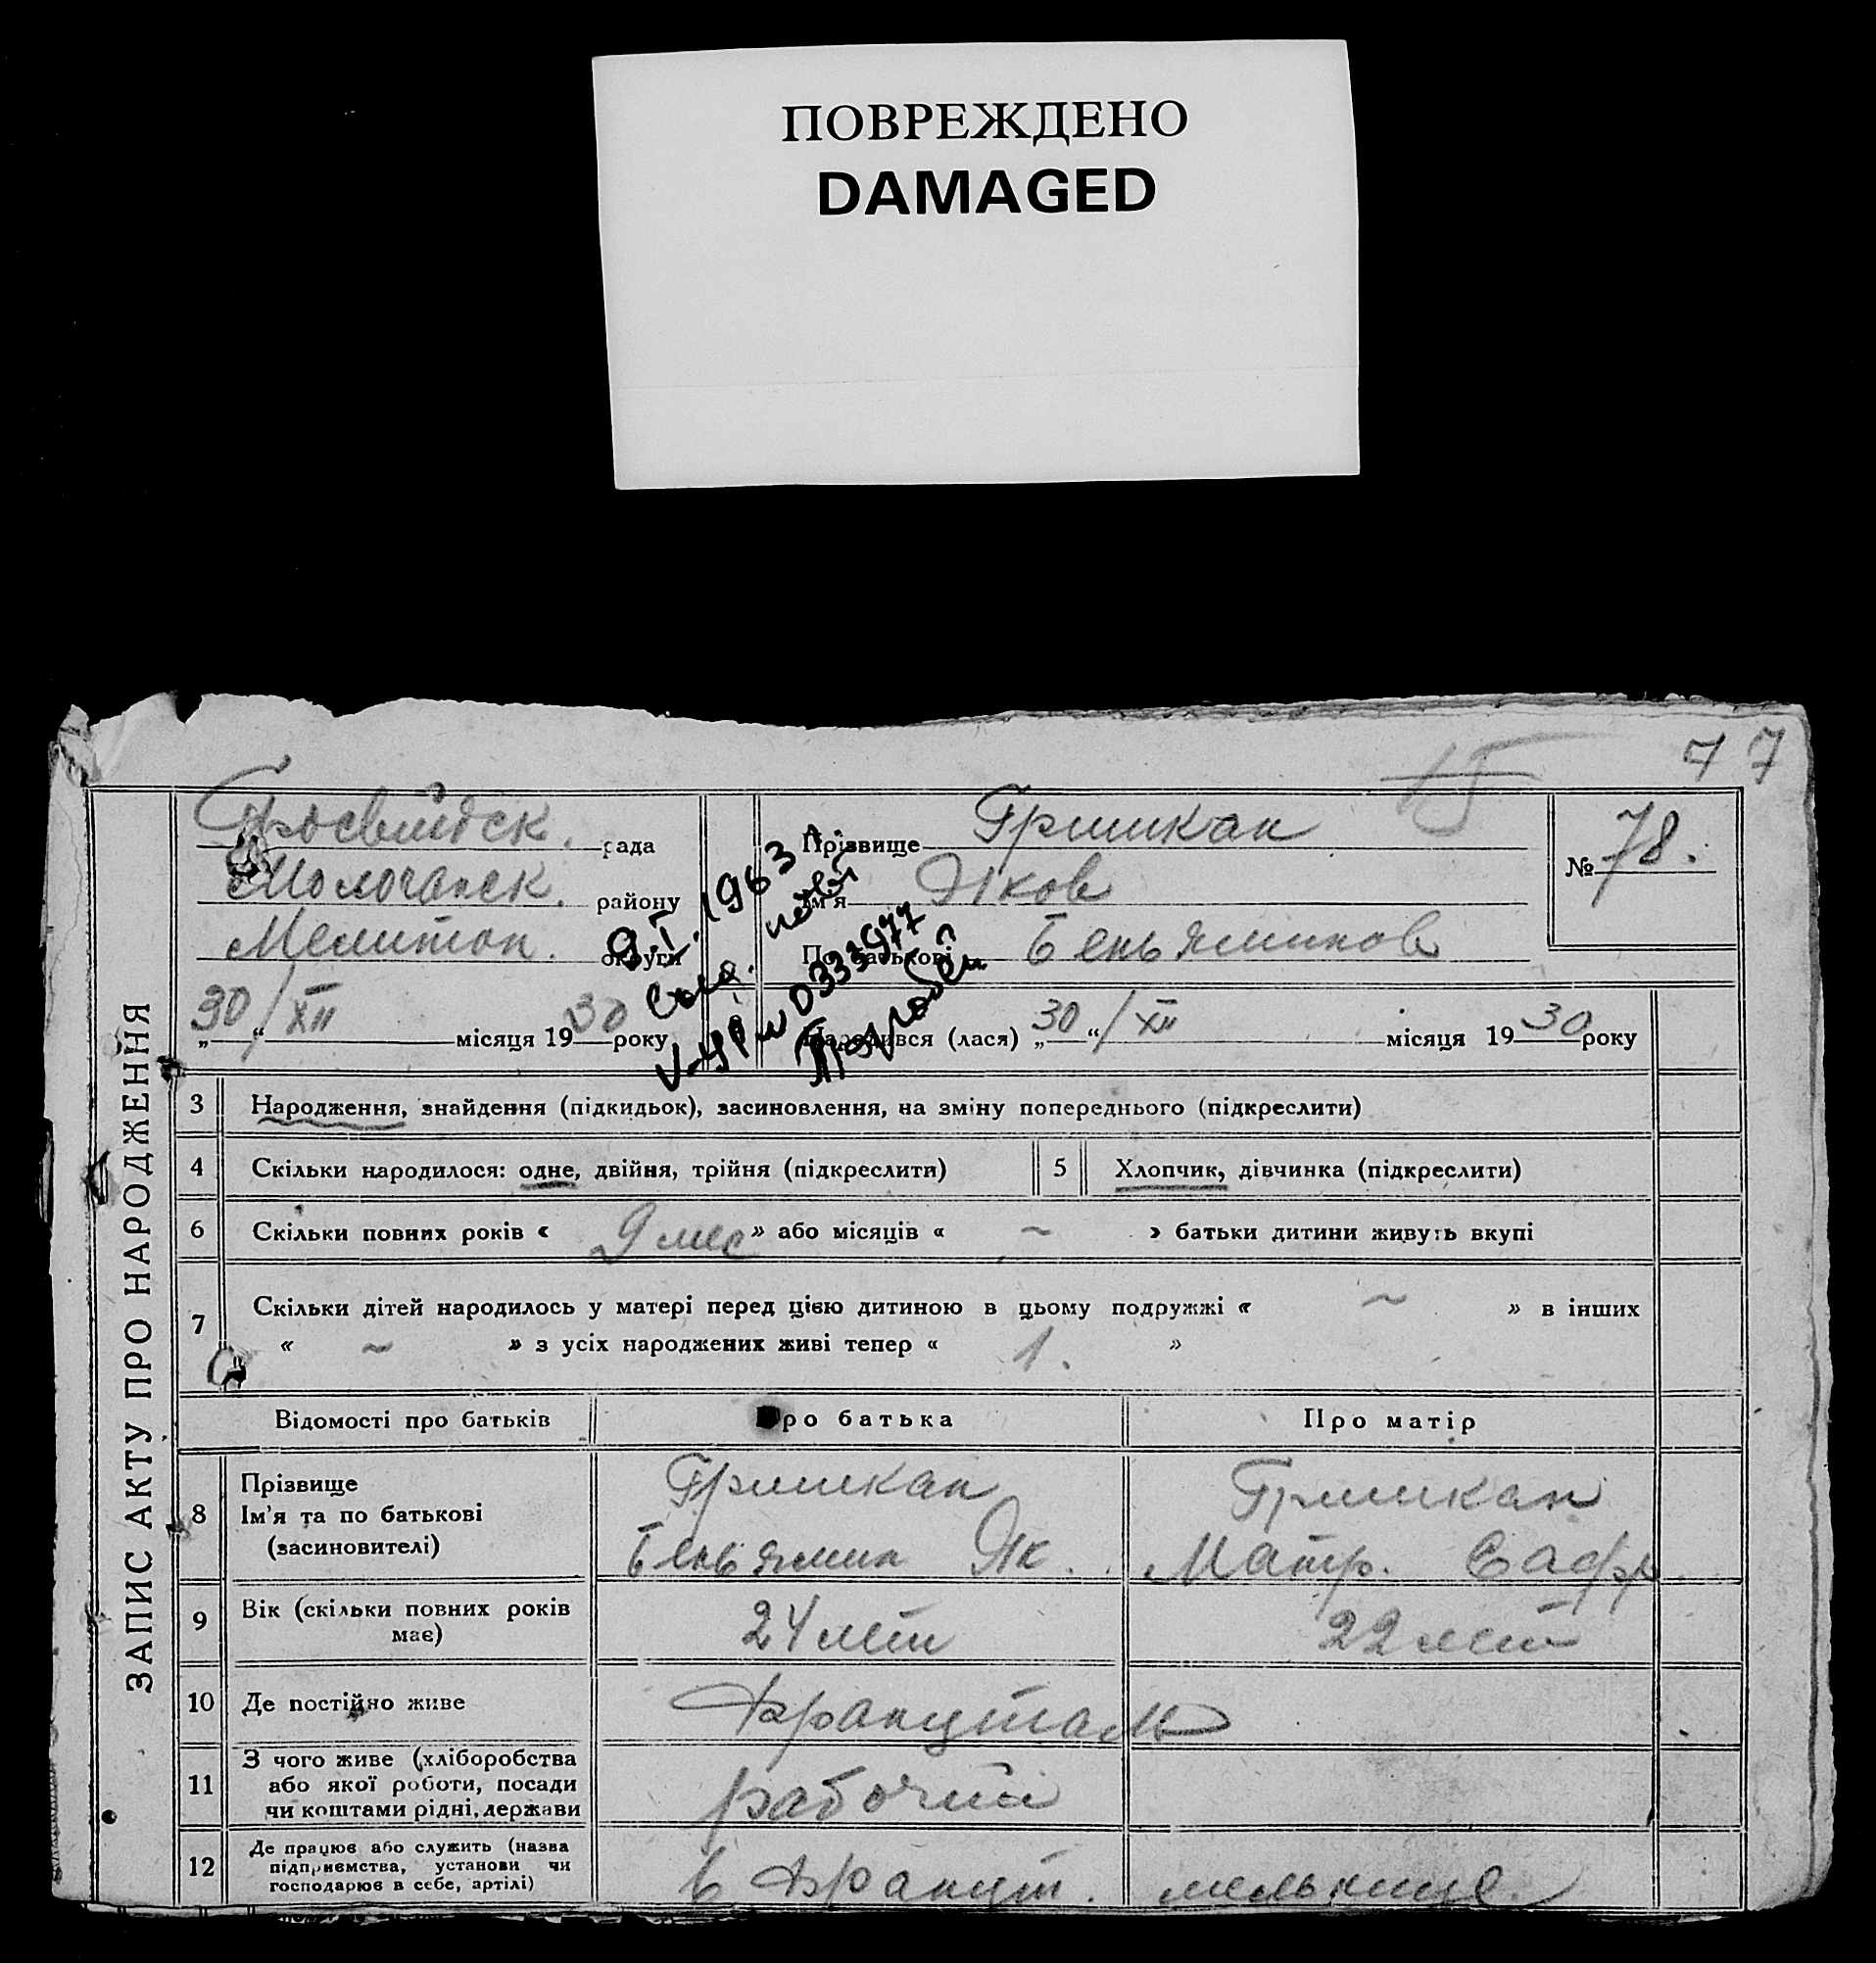 ПОВРЕЖДЕНО
DAMAGED
77
15
ЗАПИС АКТУ ПРО НАРОДЖЕННЯ
рада
Молочанск. району
Мелитоп. округи
„30“/XII місяця 1930 року
9.I.1963
Прізвище Гришкан
Ім'я Яков
По батькові Беньяминов
№ 78.
Народився (лася) „30“/XII місяця 1930 року
3 Народження, знайдення (підкидьок), засиновлення, на зміну попереднього (підкреслити)
4 Скільки народилося: одне, двійня, трійня (підкреслити) 5 Хлопчик, дівчинка (підкреслити)
6 Скільки повних років « 9 мес » або місяців « ~ » батьки дитини живуть вкупі
7 Скільки дітей народилось у матері перед цією дитиною в цьому подружжі « ~ » в інших
« ~ » з усіх народжених живі тепер « 1. »
Відомості про батьків Про батька Про матір
8 Прізвище Гришкан Гришкан
Ім'я та по батькові
(засиновителі) Беньямин Як. Матр. Сафр.
9 Вік (скільки повних років має) 24 лет 22 лет
10 Де постійно живе Францталь
11 З чого живе (хліборобства
або якої роботи, посади
чи коштами рідні, держави рабочий
12 Де працює або служить (назва
підприємства, установи чи
господарює в себе, артілі) в Францт. мельнице